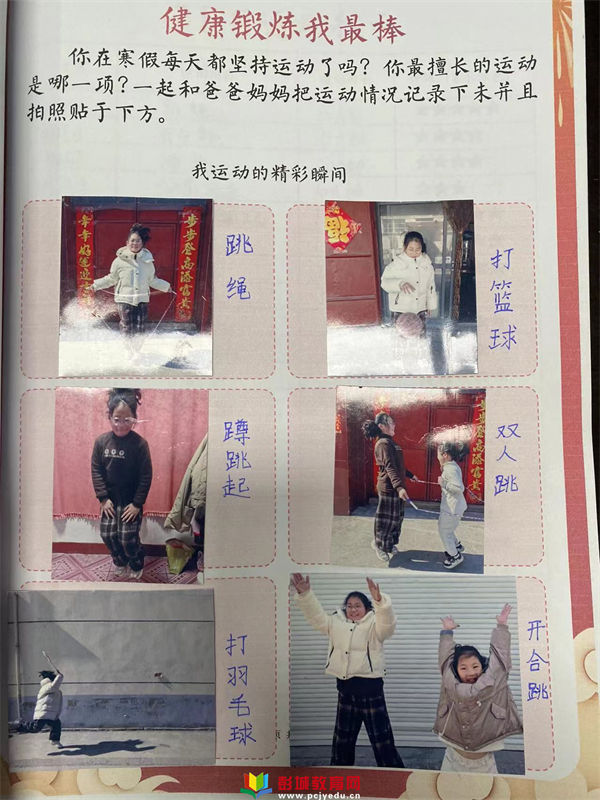 健康锻炼我最棒
你在寒假每天都坚持运动了吗？你最擅长的运动
是哪一项？一起和爸爸妈妈把运动情况记录下来并且
拍照贴于下方。
我运动的精彩瞬间
步步登高添富贵
跳绳
福
打篮球
蹲跳起
步步登高添富贵
双人跳
打羽毛球
开合跳
彭城教育网
www.pcjyedu.cn